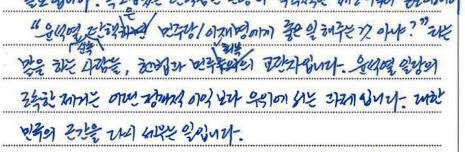 "윤석열 탄핵은 민주당/이재명에게 좋은 일 해주는 것 아냐?" 라는
말을 하는 사람들, 헌법과 민주 의 교란자입니다. 윤석열 일당의
조속한 제거는 어떤 정파적 이익 보다 우위에 서는 과제입니다. 대한
민국의 근간을 다시 세우는 일입니다.